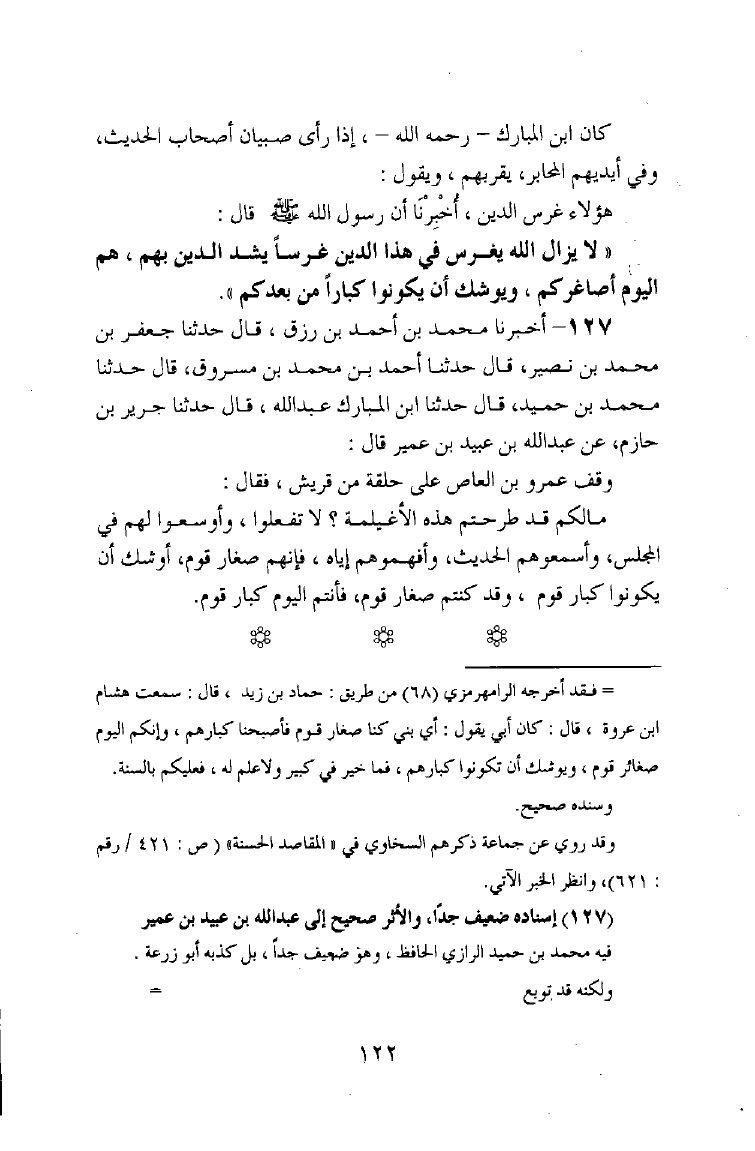 كان ابن المبارك – رحمه الله – ، إذا رأى صبيان أصحاب الحديث،
وفي أيديهم المحابر، يقربهم ، ويقول :
هؤلاء غرس الدين ، أُخْبِرْنَا أن رسول الله ﷺ قال :
« لا يزال الله يغرس في هذا الدين غرساً يشد الدين بهم ، هم
اليوم أصاغركم ، ويوشك أن يكونوا كباراً من بعدكم ».
١٢٧– أخبرنا محمد بن أحمد بن رزق ، قال حدثنا جعفر بن
محمد بن نصير، قال حدثنا أحمد بن محمد بن مسروق، قال حدثنا
محمد بن حميد، قال حدثنا ابن المبارك عبدالله ، قال حدثنا جرير بن
حازم، عن عبدالله بن عبيد بن عمير قال :
وقف عمرو بن العاص على حلقة من قريش ، فقال :
مالكم قد طرحتم هذه الأغيلمة ؟ لا تفعلوا ، وأوسعوا لهم في
المجلس، وأسمعوهم الحديث، وأفهموهم إياه ، فإنهم صغار قوم، أوشك أن
يكونوا كبار قوم ، وقد كنتم صغار قوم، فأنتم اليوم كبار قوم.
= فقد أخرجه الرامهرمزي (٦٨) من طريق : حماد بن زيد ، قال : سمعت هشام
ابن عروة ، قال : كان أبي يقول : أي بني كنا صغار قوم فأصبحنا كبارهم ، وإنكم اليوم
صغائر قوم ، ويوشك أن تكونوا كبارهم ، فما خير في كبير ولاعلم له ، فعليكم بالسنة.
وسنده صحيح.
وقد روي عن جماعة ذكرهم السخاوي في « المقاصد الحسنة» ( ص : ٤٢١ / رقم
: ٦٢١)، وانظر الخبر الآتي.
(١٢٧) إسناده ضعيف جدًا، والأثر صحيح إلى عبدالله بن عبيد بن عمير
فيه محمد بن حميد الرازي الحافظ ، وهو ضعيف جداً ، بل كذبه أبو زرعة .
ولكنه قد توبع =
١٢٢